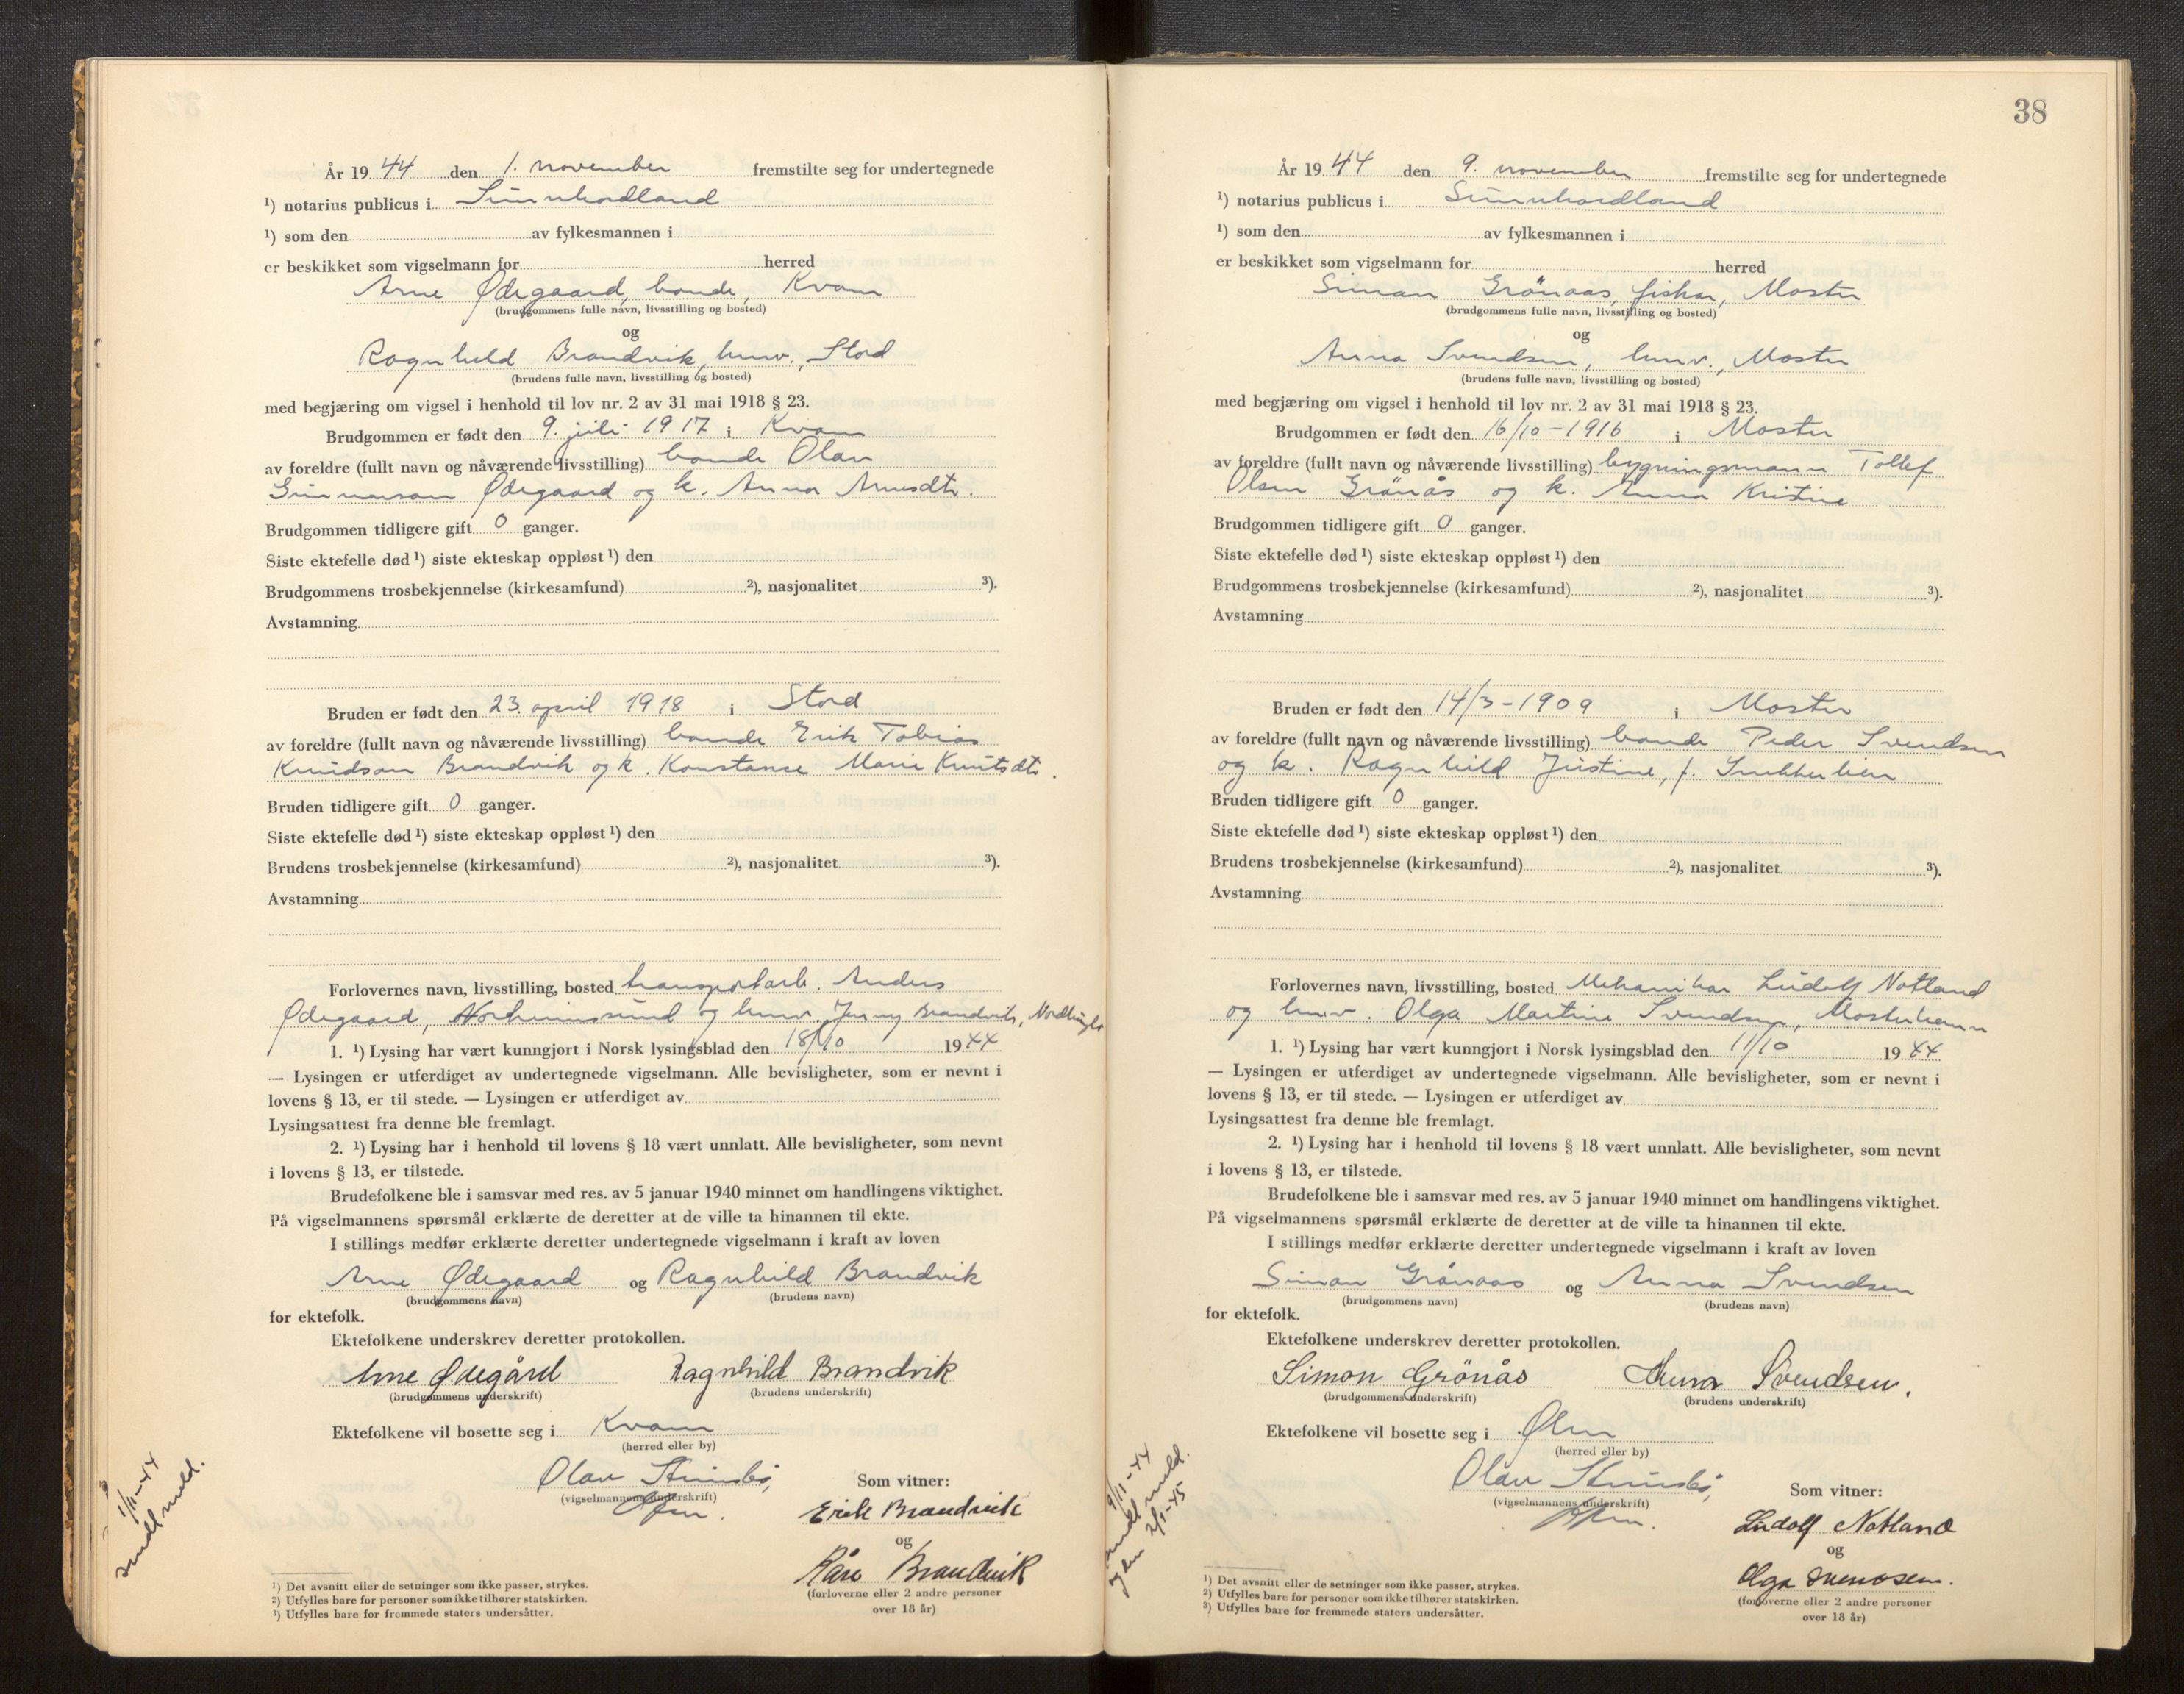 År 19 44 den 1. november fremstilte seg for undertegnede
¹) notarius publicus i Sunnhordland
¹) som den av fylkesmannen i
er beskikket som vigselmann for herred
Arne Ødegaard, bonde, Kvam
(brudgommens fulle navn, livsstilling og bosted)
og
Ragnhild Brandvik, husv., Stord
(brudens fulle navn, livsstilling og bosted)
med begjæring om vigsel i henhold til lov nr. 2 av 31 mai 1918 § 23.
Brudgommen er født den 9. juli 1917 i Kvam
av foreldre (fullt navn og nåværende livsstilling) bonde Olav
Gunnarson Ødegaard og k. Anna Arnesdtr.
Brudgommen tidligere gift 0 ganger.
Siste ektefelle død ¹) siste ekteskap oppløst ¹) den
Brudgommens trosbekjennelse (kirkesamfund) ²), nasjonalitet ³).
Avstamning
Bruden er født den 23. april 1918 i Stord
av foreldre (fullt navn og nåværende livsstilling) bonde Erik Tobias
Knudson Brandvik og k. Konstanse Marie Knutsdtr.
Bruden tidligere gift 0 ganger.
Siste ektefelle død ¹) siste ekteskap oppløst ¹) den
Brudens trosbekjennelse (kirkesamfund) ²), nasjonalitet ³).
Avstamning
Forlovernes navn, livsstilling, bosted transportarb. Anders
Ødegaard, Norheimsund og husv. Jenny Brandvik,
1. ¹) Lysing har vært kunngjort i Norsk lysingsblad den 18/10 1944
— Lysingen er utferdiget av undertegnede vigselmann. Alle bevisligheter, som er nevnt i
lovens § 13, er til stede. — Lysingen er utferdiget av
Lysingsattest fra denne ble fremlagt.
2. ¹) Lysing har i henhold til lovens § 18 vært unnlatt. Alle bevisligheter, som nevnt
i lovens § 13, er tilstede.
Brudefolkene ble i samsvar med res. av 5 januar 1940 minnet om handlingens viktighet.
På vigselmannens spørsmål erklærte de deretter at de ville ta hinannen til ekte.
I stillings medfør erklærte deretter undertegnede vigselmann i kraft av loven
Arne Ødegaard og Ragnhild Brandvik
(brudgommens navn) (brudens navn)
for ektefolk.
Ektefolkene underskrev deretter protokollen.
Arne Ødegård Ragnhild Brandvik
(brudgommens underskrift) (brudens underskrift)
Ektefolkene vil bosette seg i Kvam
(herred eller by)
Olav
(vigselmannens underskrift)
Som vitner:
Erik Brandvik
og
Kåre Brandvik
(forloverne eller 2 andre personer
over 18 år)
1/11-44
meld.
¹) Det avsnitt eller de setninger som ikke passer, strykes.
²) Utfylles bare for personer som ikke tilhører statskirken.
³) Utfylles bare for fremmede staters undersåtter.
38
År 19 44 den 9. november fremstilte seg for undertegnede
¹) notarius publicus i Sunnhordland
¹) som den av fylkesmannen i
er beskikket som vigselmann for herred
Simon Grönaas, fisker, Moster
(brudgommens fulle navn, livsstilling og bosted)
og
Anna Svendsen, husv., Moster
(brudens fulle navn, livsstilling og bosted)
med begjæring om vigsel i henhold til lov nr. 2 av 31 mai 1918 § 23.
Brudgommen er født den 16/10-1916 i Moster
av foreldre (fullt navn og nåværende livsstilling) bygningsmann Tollef
Olsen Grönås og k. Anna Kristine
Brudgommen tidligere gift 0 ganger.
Siste ektefelle død ¹) siste ekteskap oppløst ¹) den
Brudgommens trosbekjennelse (kirkesamfund) ²), nasjonalitet ³).
Avstamning
Bruden er født den 14/3-1909 i Moster
av foreldre (fullt navn og nåværende livsstilling) bonde Peder Svendsen
og k. Ragnhild Justine, f.
Bruden tidligere gift 0 ganger.
Siste ektefelle død ¹) siste ekteskap oppløst ¹) den
Brudens trosbekjennelse (kirkesamfund) ²), nasjonalitet ³).
Avstamning
Forlovernes navn, livsstilling, bosted Mekaniker Ludolf Notland
og husv. Olga Martine Svendsen, Mosterhamn
1. ¹) Lysing har vært kunngjort i Norsk lysingsblad den 11/10 1944
— Lysingen er utferdiget av undertegnede vigselmann. Alle bevisligheter, som er nevnt i
lovens § 13, er til stede. — Lysingen er utferdiget av
Lysingsattest fra denne ble fremlagt.
2. ¹) Lysing har i henhold til lovens § 18 vært unnlatt. Alle bevisligheter, som nevnt
i lovens § 13, er tilstede.
Brudefolkene ble i samsvar med res. av 5 januar 1940 minnet om handlingens viktighet.
På vigselmannens spørsmål erklærte de deretter at de ville ta hinannen til ekte.
I stillings medfør erklærte deretter undertegnede vigselmann i kraft av loven
Simon Grönaas og Anna Svendsen
(brudgommens navn) (brudens navn)
for ektefolk.
Ektefolkene underskrev deretter protokollen.
Simon Grönås Anna Svendsen.
(brudgommens underskrift) (brudens underskrift)
Ektefolkene vil bosette seg i Ølen
(herred eller by)
Olav
(vigselmannens underskrift)
Som vitner:
Ludolf Notland
og
Olga Svendsen.
(forloverne eller 2 andre personer
over 18 år)
9/11-44
meld.
¹) Det avsnitt eller de setninger som ikke passer, strykes.
²) Utfylles bare for personer som ikke tilhører statskirken.
³) Utfylles bare for fremmede staters undersåtter.